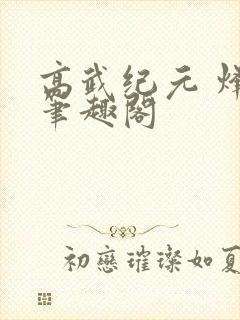 高武纪元 烽
笔趣阁
初戀璀璨如夏